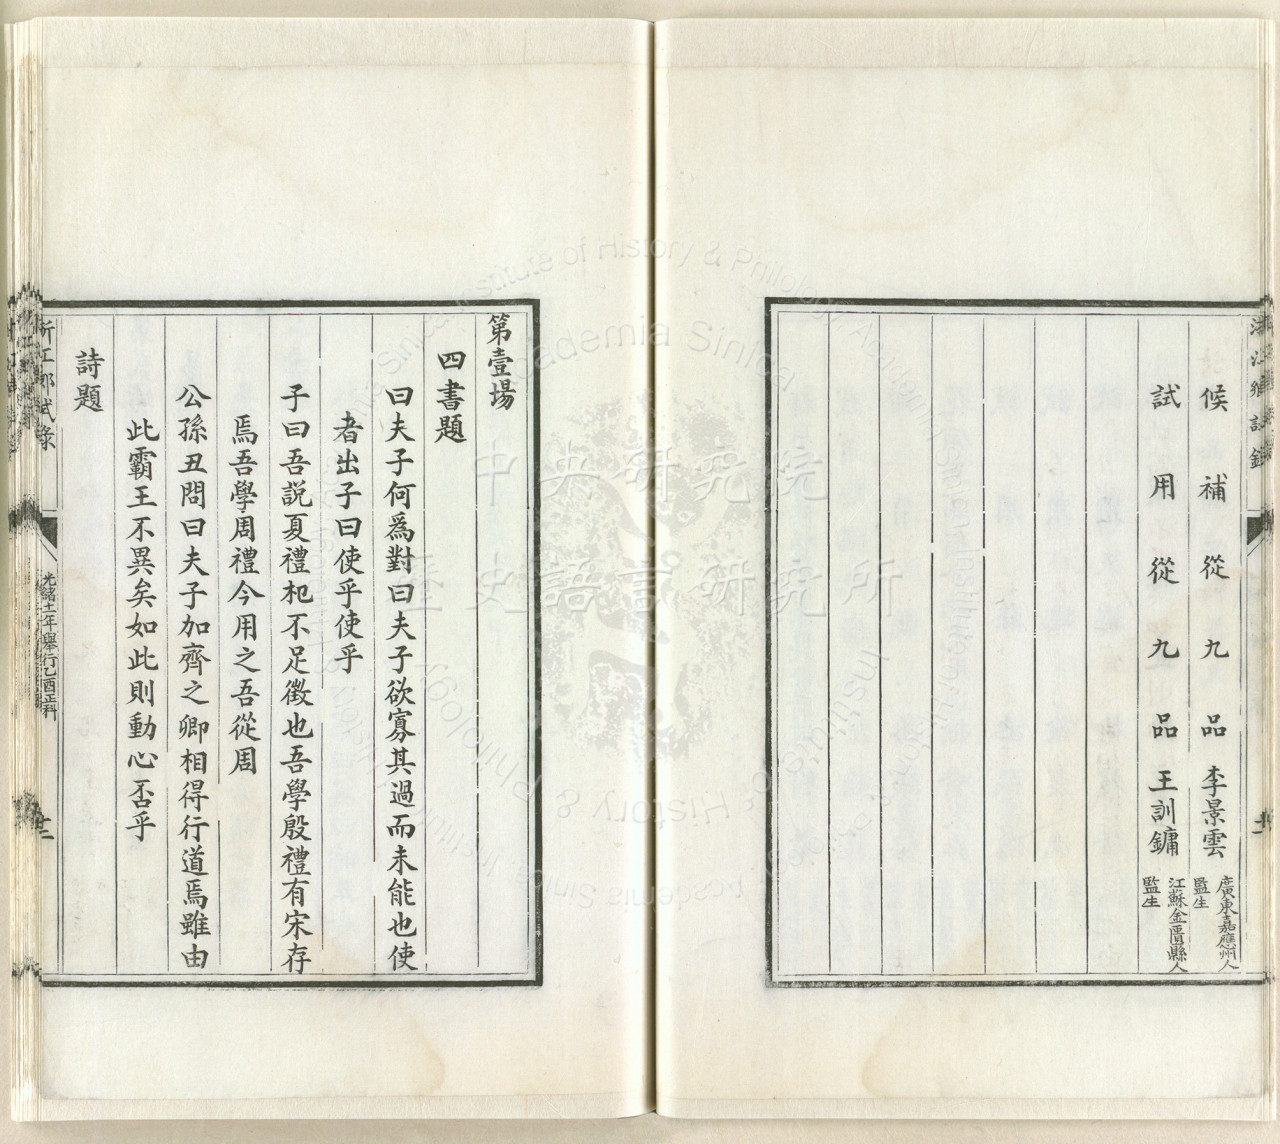 候補從九品李景雲廣東嘉應州人監生
試用從九品王訓鏞江蘇金匱縣人監生
第壹場
四書題
曰夫子何為對曰夫子欲寡其過而未能也使
者出子曰使乎使乎
子曰吾説夏禮杞不足徵也吾學殷禮有宋存
焉吾學周禮今用之吾從周
公孫丑問曰夫子加齊之卿相得行道焉雖由
此霸王不異矣如此則動心否乎
詩題
浙江鄉試錄
光緒十一年舉行乙酉正科
中央研究院
歷史語言研究所
Institute of History & Philology, Academia Sinica